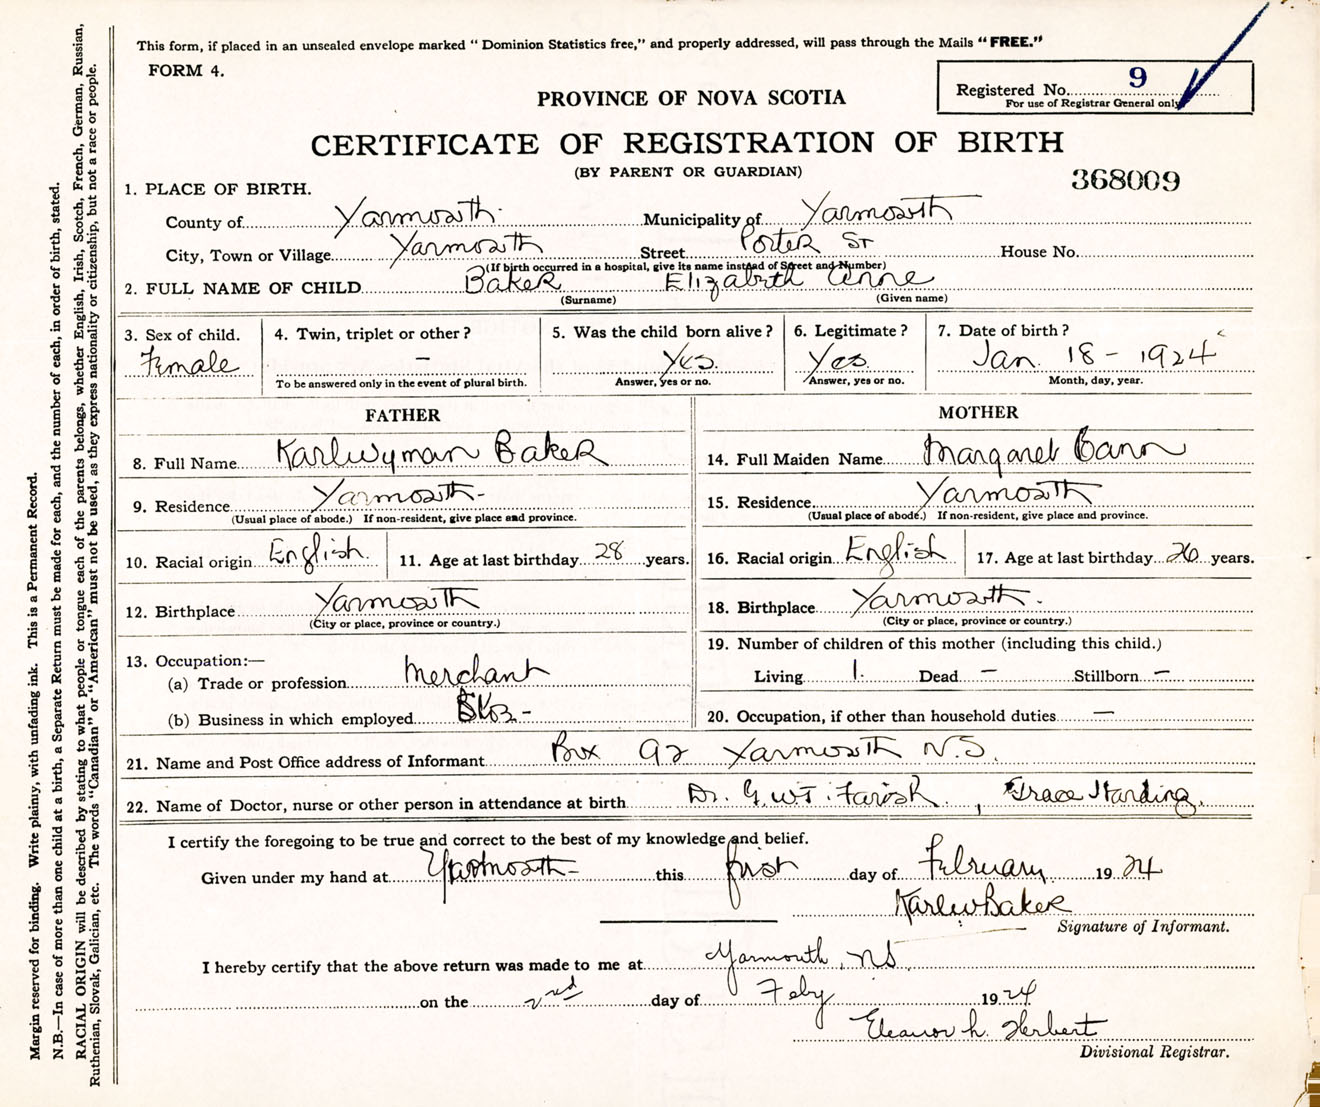 This form, if placed in an unsealed envelope marked "Dominion Statistics free," and properly addressed, will pass through the Mails "FREE."
FORM 4.
Registered No. 9
For use of Registrar General only
PROVINCE OF NOVA SCOTIA
CERTIFICATE OF REGISTRATION OF BIRTH
(BY PARENT OR GUARDIAN)
368009
1. PLACE OF BIRTH.
County of Yarmouth Municipality of Yarmouth
City, Town or Village Yarmouth Street Porter St House No.
(If birth occurred in a hospital, give its name instead of Street and Number)
2. FULL NAME OF CHILD Baker Elizabeth Anne
(Surname) (Given name)
3. Sex of child. 4. Twin, triplet or other? 5. Was the child born alive? 6. Legitimate? 7. Date of birth?
Female — Yes. Yes. Jan. 18 - 1924
To be answered only in the event of plural birth. Answer, yes or no. Answer, yes or no. Month, day, year.
FATHER
8. Full Name Karl Wyman Baker
9. Residence Yarmouth-
(Usual place of abode.) If non-resident, give place and province.
10. Racial origin English. 11. Age at last birthday 28 years.
12. Birthplace Yarmouth
(City or place, province or country.)
13. Occupation:—
(a) Trade or profession Merchant
(b) Business in which employed
MOTHER
14. Full Maiden Name Margaret Cann
15. Residence Yarmouth
(Usual place of abode.) If non-resident, give place and province.
16. Racial origin English 17. Age at last birthday 26 years.
18. Birthplace Yarmouth.
(City or place, province or country.)
19. Number of children of this mother (including this child.)
Living 1. Dead — Stillborn —
20. Occupation, if other than household duties —
21. Name and Post Office address of Informant Box 92 Yarmouth N.S.
22. Name of Doctor, nurse or other person in attendance at birth Dr. G.W.T. Farish. , Grace Harding.
I certify the foregoing to be true and correct to the best of my knowledge and belief.
Given under my hand at Yarmouth- this first day of February 1924
Karl W Baker
Signature of Informant.
I hereby certify that the above return was made to me at Yarmouth, NS
on the 2nd day of Feby 1924
Eleanor h. Herbert
Divisional Registrar.
Margin reserved for binding. Write plainly, with unfading ink. This is a Permanent Record.
N.B.—In case of more than one child at a birth, a Separate Return must be made for each, and the number of each, in order of birth, stated.
RACIAL ORIGIN will be described by stating to what people or tongue each of the parents belongs, whether English, Irish, Scotch, French, German, Russian,
Ruthenian, Slovak, Galician, etc. The words "Canadian" or "American" must not be used, as they express nationality or citizenship, but not a race or people.